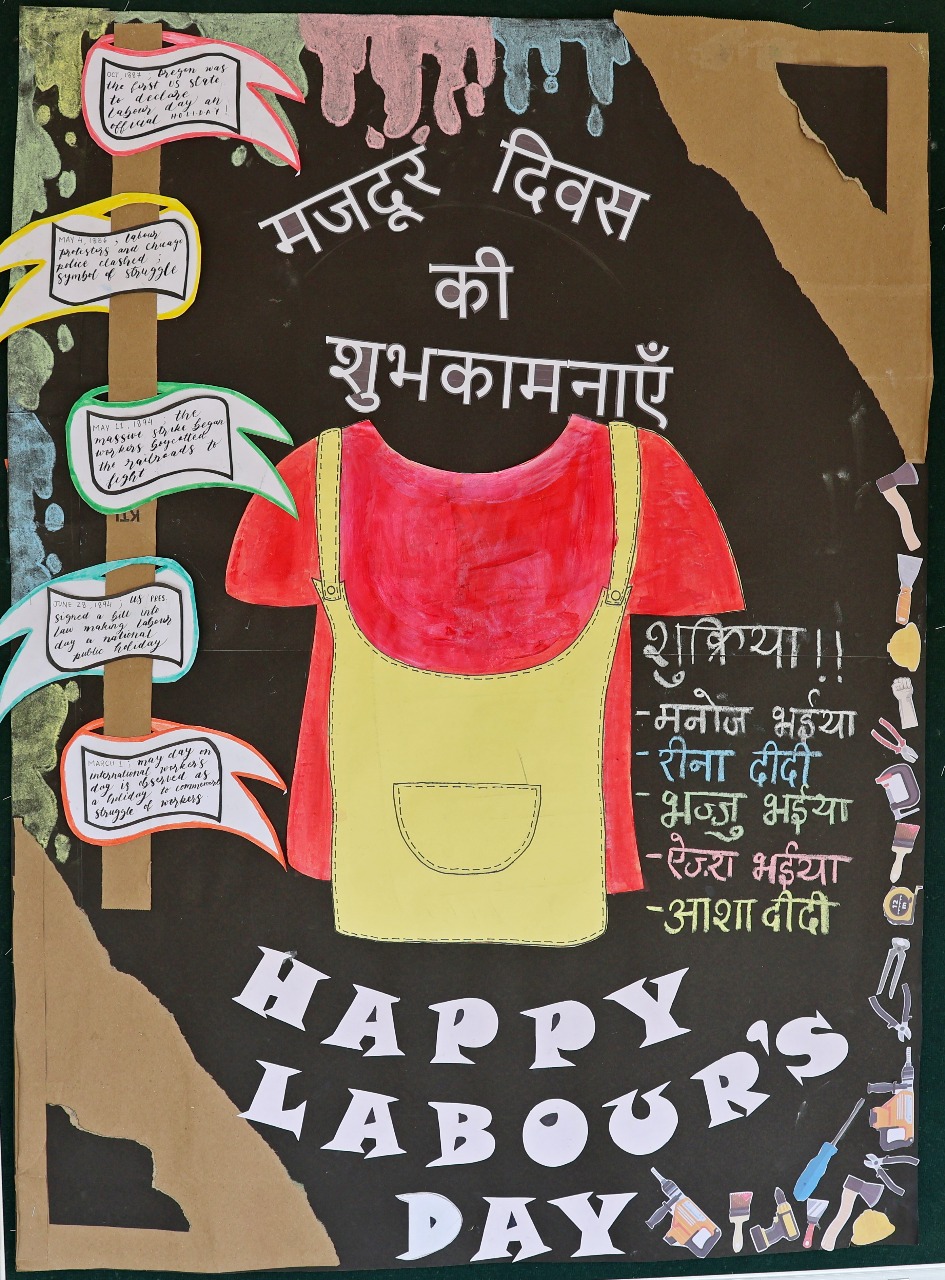 OCT, 1887 ; Oregon was
the first US state
to declare
labour day an
official HOLIDAY!
MAY 4, 1886 ; labour
protestors and chicago
police clashed ;
symbol of struggle
MAY 11, 1894 ; the
massive strike began
workers boycotted
the railroads to
fight
JUNE 28, 1894 ; US PRES.
signed a bill into
law making labour
day a national
public holiday
MARCH 1 ; may day on
international workers
day is observed as
a holiday to commemorate
struggle of workers
मजदूर दिवस
की
शुभकामनाएँ
शुक्रिया!!
- मनोज भईया
- रीना दीदी
- भज्जु भईया
- ऐज़रा भईया
- आशा दीदी
HAPPY
LABOUR'S
DAY